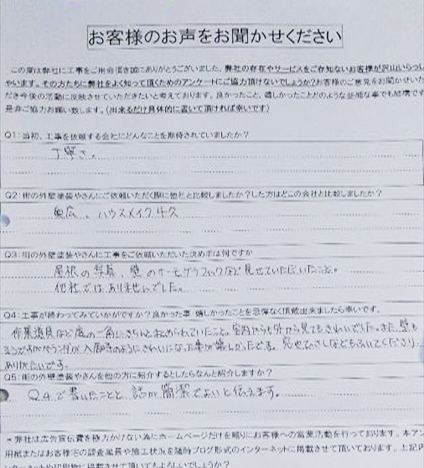 お客様のお声をお聞かせください
この度は弊社に工事をご用命頂き誠にありがとうございました。弊社の存在やサービスをご存知ないお客様が沢山いらっし
ゃいます。その方たちに弊社をよく知って頂くためのアンケートにご協力頂けないでしょうか?お客様のご意見をお聞かせいた
だき今後の活動に反映させていただきたいと考えております。良かったこと、嬉しかったことどのような些細な事でも結構です
是非ご協力お願い致します。(出来るだけ具体的に書いて頂ければ幸いです)
Q1:当初、工事を依頼する会社にどんなことを期待されていましたか?
丁寧さ。
Q2:街の外壁塗装やさんにご依頼いただく際に他社と比較しましたか?した方はどこの会社と比較しましたか?
奥広、ハウスメイク牛久
Q3:街の外壁塗装やさんに工事をご依頼いただいた決め手は何ですか
屋根の写真、壁のサーモグラフィックなど見せていただいたこと。
他社ではありませんでした。
Q4:工事が終わってみていかがですか?良かった事・嬉しかったことを忌憚なく頂戴出来ましたら幸いです。
作業道具など庭の一角にきちんとまとめられていたこと。室内からも外から見てもきれいでした。また、壁も
ベランダが入居時のようにきれいになった事が嬉しかったです。
ありがたいです。
Q5:街の外壁塗装やさんを他の方に紹介するとしたらなんと紹介しますか?
Q4.で書いたことと、話が簡潔でよいと伝えます。
*弊社は広告宣伝費を極力かけない為にホームページだけを頼りにお客様への営業活動を行っております。本アン
用紙またはお客様宅の診査風景や施工状況を随時ブログ形式のインターネットに掲載させて頂いております。上記内